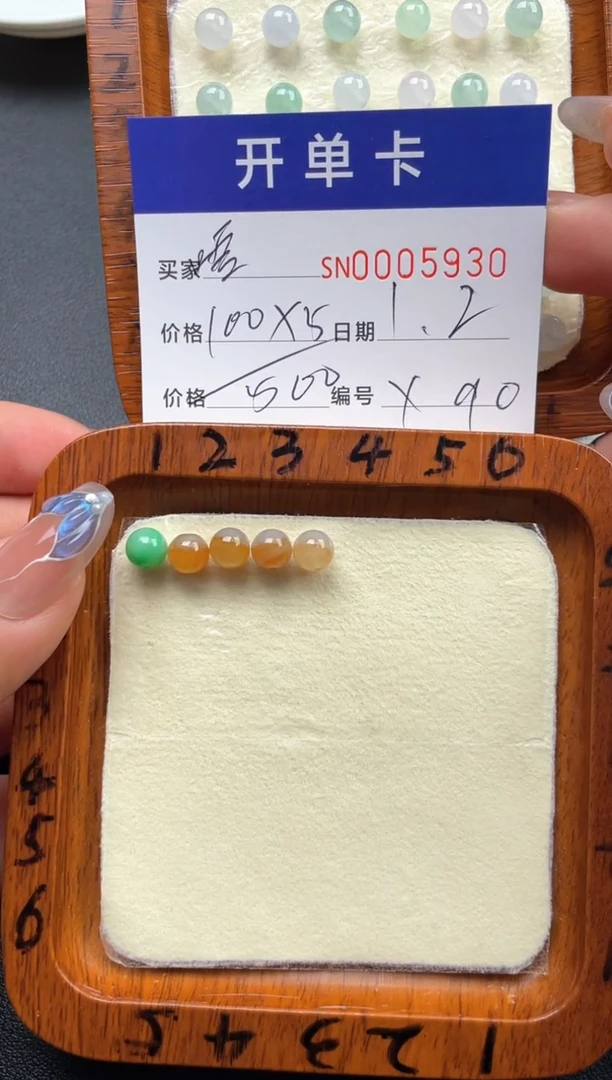 开单卡
买家 SN0005930
价格 100X5 日期 1.2
价格 500 编号 Y 90
1 2 3 4 5 6
3
4
5
6
1 2 3 4 5